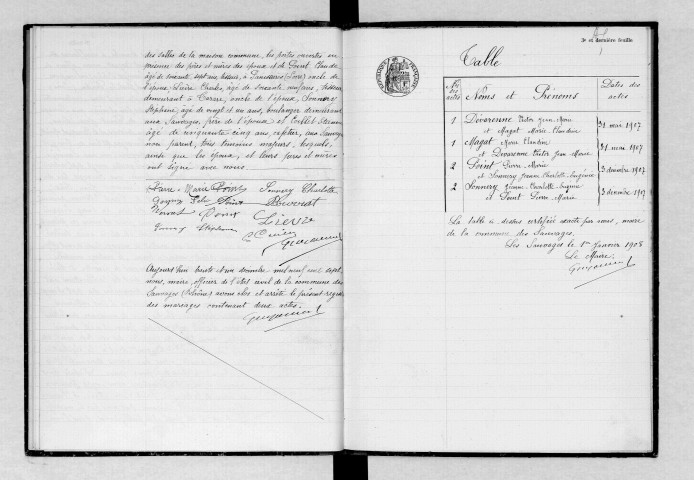 des salles de la maison commune, les portes ouvertes en
présence des pères et mères des époux et de Point Claude
âgé de soixante sept ans, tisseur, à (Loire) oncle de
l'époux, Lièvre Charles, âgé de soixante ans, tisseur
demeurant à Tarare, oncle de l'époux, Sonnery
Stéphane, âgé de vingt et un ans, boulanger demeurant
aux Sauvages, frère de l'épouse et
âgé de cinquante cinq ans, aux Sauvages
non parent, tous témoins majeurs, lesquels
ainsi que les époux, et leurs pères et mères
ont signé avec nous.
Pierre Marie Point Sonnery Charlotte
Point
Point Lièvre
Sonnery Stéphane
Aujourd'hui trente et un décembre mil neuf cent sept
nous, maire, officier de l'état civil de la commune des
Sauvages (Rhône) avons clos et arrêté le présent registre
des mariages contenant deux actes.
et dernière feuille
Table
Nos des actes Noms et Prénoms Dates des actes
1 Dévarenne Victor Jean Marie
et Magat Marie Claudine 31 mai 1907
1 Magat Marie Claudine
et Devarenne Victor Jean Marie 31 mai 1907
2 Point Pierre Marie
et Sonnery Jeanne Charlotte Eugénie 3 décembre 1907
2 Sonnery Jeanne Charlotte Eugénie
et Point Pierre Marie 3 décembre 1907
La table ci-dessus certifiée exacte par nous, maire
de la commune des Sauvages.
Les Sauvages le 1er Janvier 1908
Le Maire,